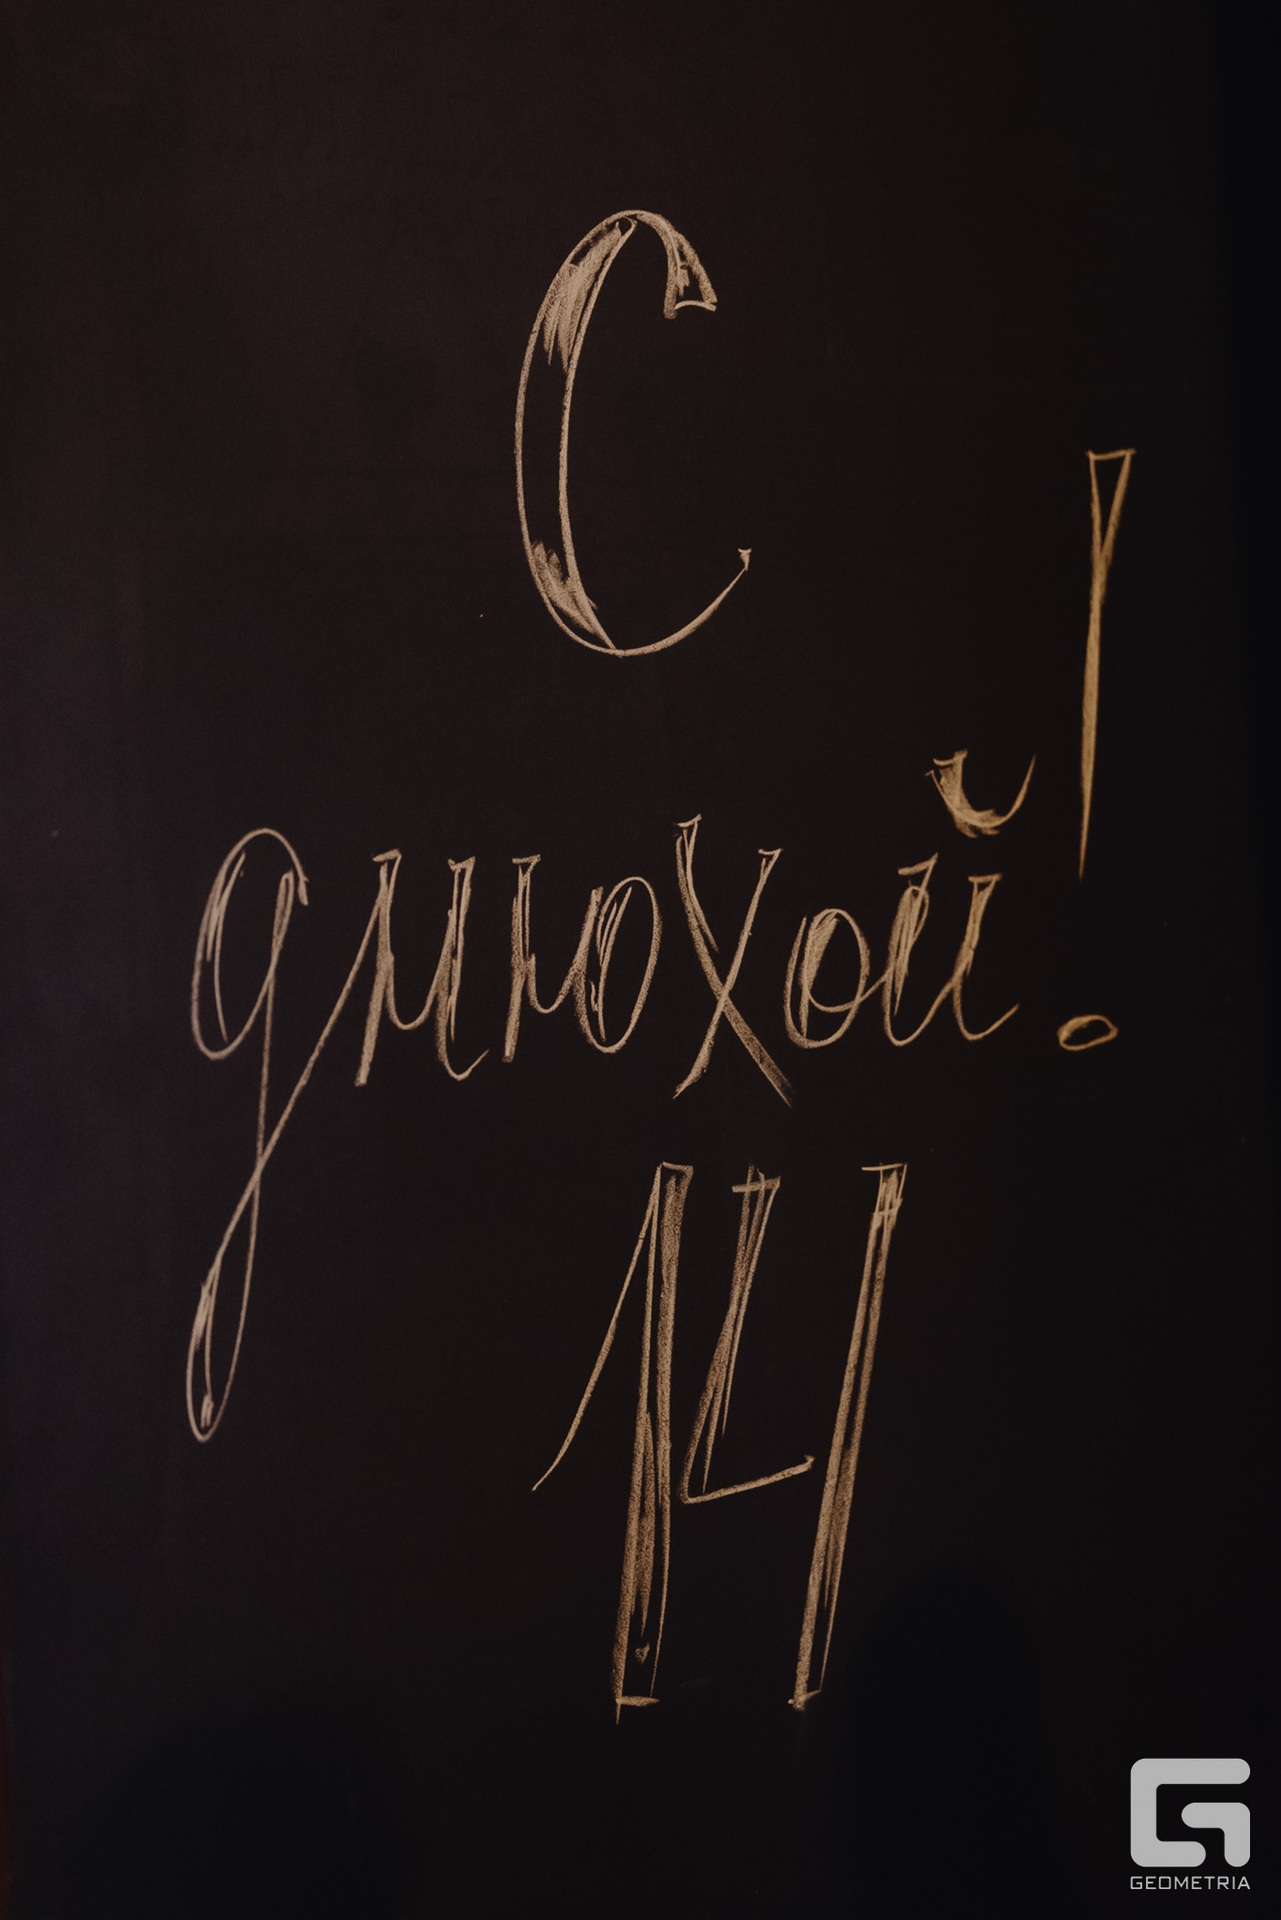 С
дмюхой!
14
GEOMETRIA